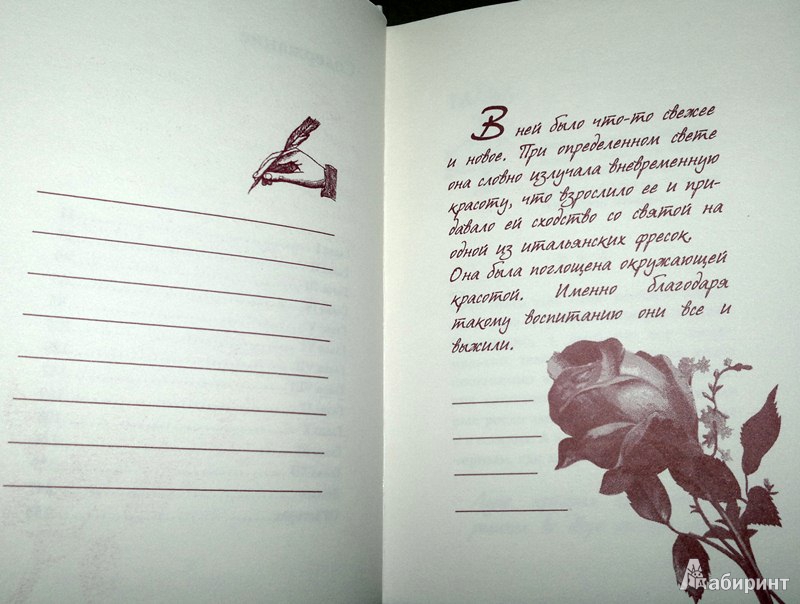 В ней было что-то свежее
и новое. При определенном свете
она словно излучала вневременную
красоту, что взрослило ее и при-
давало ей сходство со святой на
одной из итальянских фресок.
Она была поглощена окружающей
красотой. Именно благодаря
такому воспитанию они все и
выжили.
Лабиринт